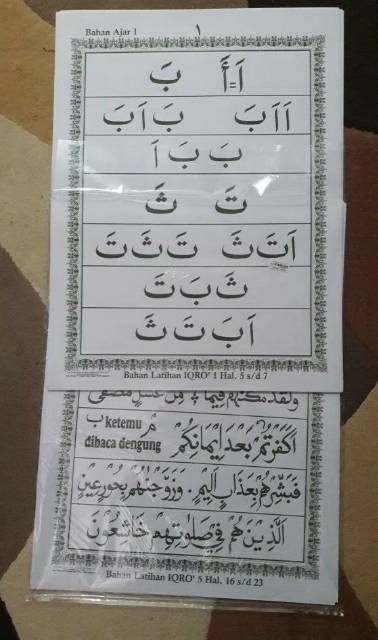 Bahan Ajar 1
١
اَ=أَ بَ
اَ اَ بَ بَ اَ بَ
بَ بَ اَ
تَ ثَ
اَ تَ ثَ تَ ثَ تَ
ثَ بَ تَ
اَ بَ تَ ثَ
Bahan Latihan IQRO' 1 Hal. 5 s/d 7
ب ketemu م
dibaca dengung
اَكَفَرْتُمْ بَعْدَ اِيْمَانِكُمْ
فَبَشِّرْهُمْ بِعَذَابٍ اَلِيْمٍ. وَزَوَّجْنٰهُمْ بِحُوْرٍعِيْنٍ
اَلَّذِيْنَ هُمْ فِيْ صَلَوتِهِمْ خَاشِعُوْنَ
Bahan Latihan IQRO' 5 Hal. 16 s/d 23